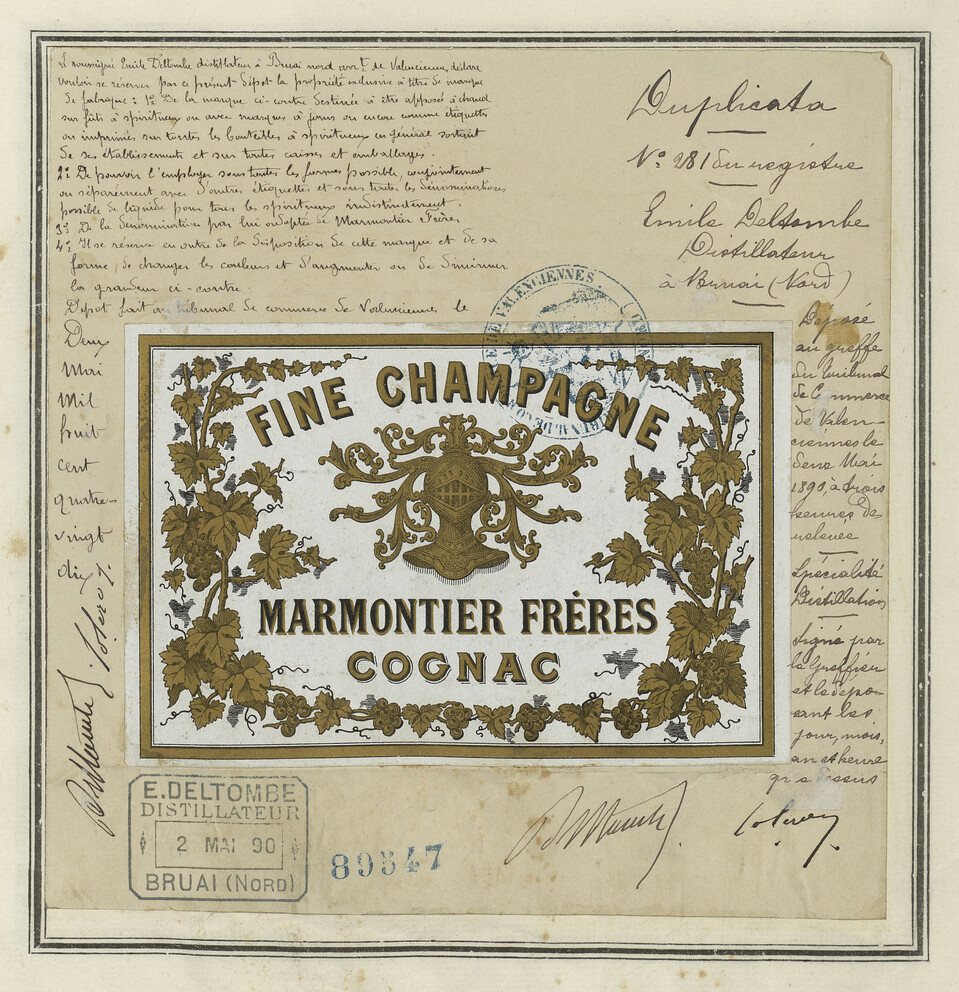 Le soussigné Emile Deltombe distillateur à Bruai nord arrt de Valenciennes, déclare
vouloir se réserver par ce présent dépôt la propriété exclusive à titre de marque
de fabrique : 1º De la marque ci-contre destinée à être apposée à chaud
sur fûts à spiritueux ou avec marques à jours ou encore comme étiquettes
ou imprimés sur toutes les bouteilles à spiritueux en général sortant
de ses établissements et sur toutes caisses et emballages.
2º De pouvoir l'employer sous toutes les formes possible, conjointement
ou séparément avec d'autres étiquettes et sous toutes les dénominations
possible de liquide pour tous les spiritueux indistinctement.
3º De la dénomination par lui adoptée de Marmontier Frères
4º Il se réserve en outre de la disposition de cette marque et de sa
forme, de changer les couleurs et d'augmenter ou de diminuer
la grandeur ci-contre.
Dépôt fait au tribunal de commerce de Valenciennes le
Deux
Mai
Mil
huit
cent
quatre-
vingt
dix
Duplicata
Nº 281 du registre
Emile Deltombe
Distillateur
à Bruai (Nord)
Déposé
au greffe
du tribunal
de Commerce
de Valen-
ciennes le
deux Mai
1890, à trois
heures de
relevée
Spécialité
Distillation
Signé par
le Greffier
et le dépo-
sant les
jour, mois,
an et heure
que dessus
VALENCIENNES
FINE CHAMPAGNE
MARMONTIER FRÈRES
COGNAC
E. DELTOMBE
DISTILLATEUR
2 MAI 90
BRUAI (NORD)
89547